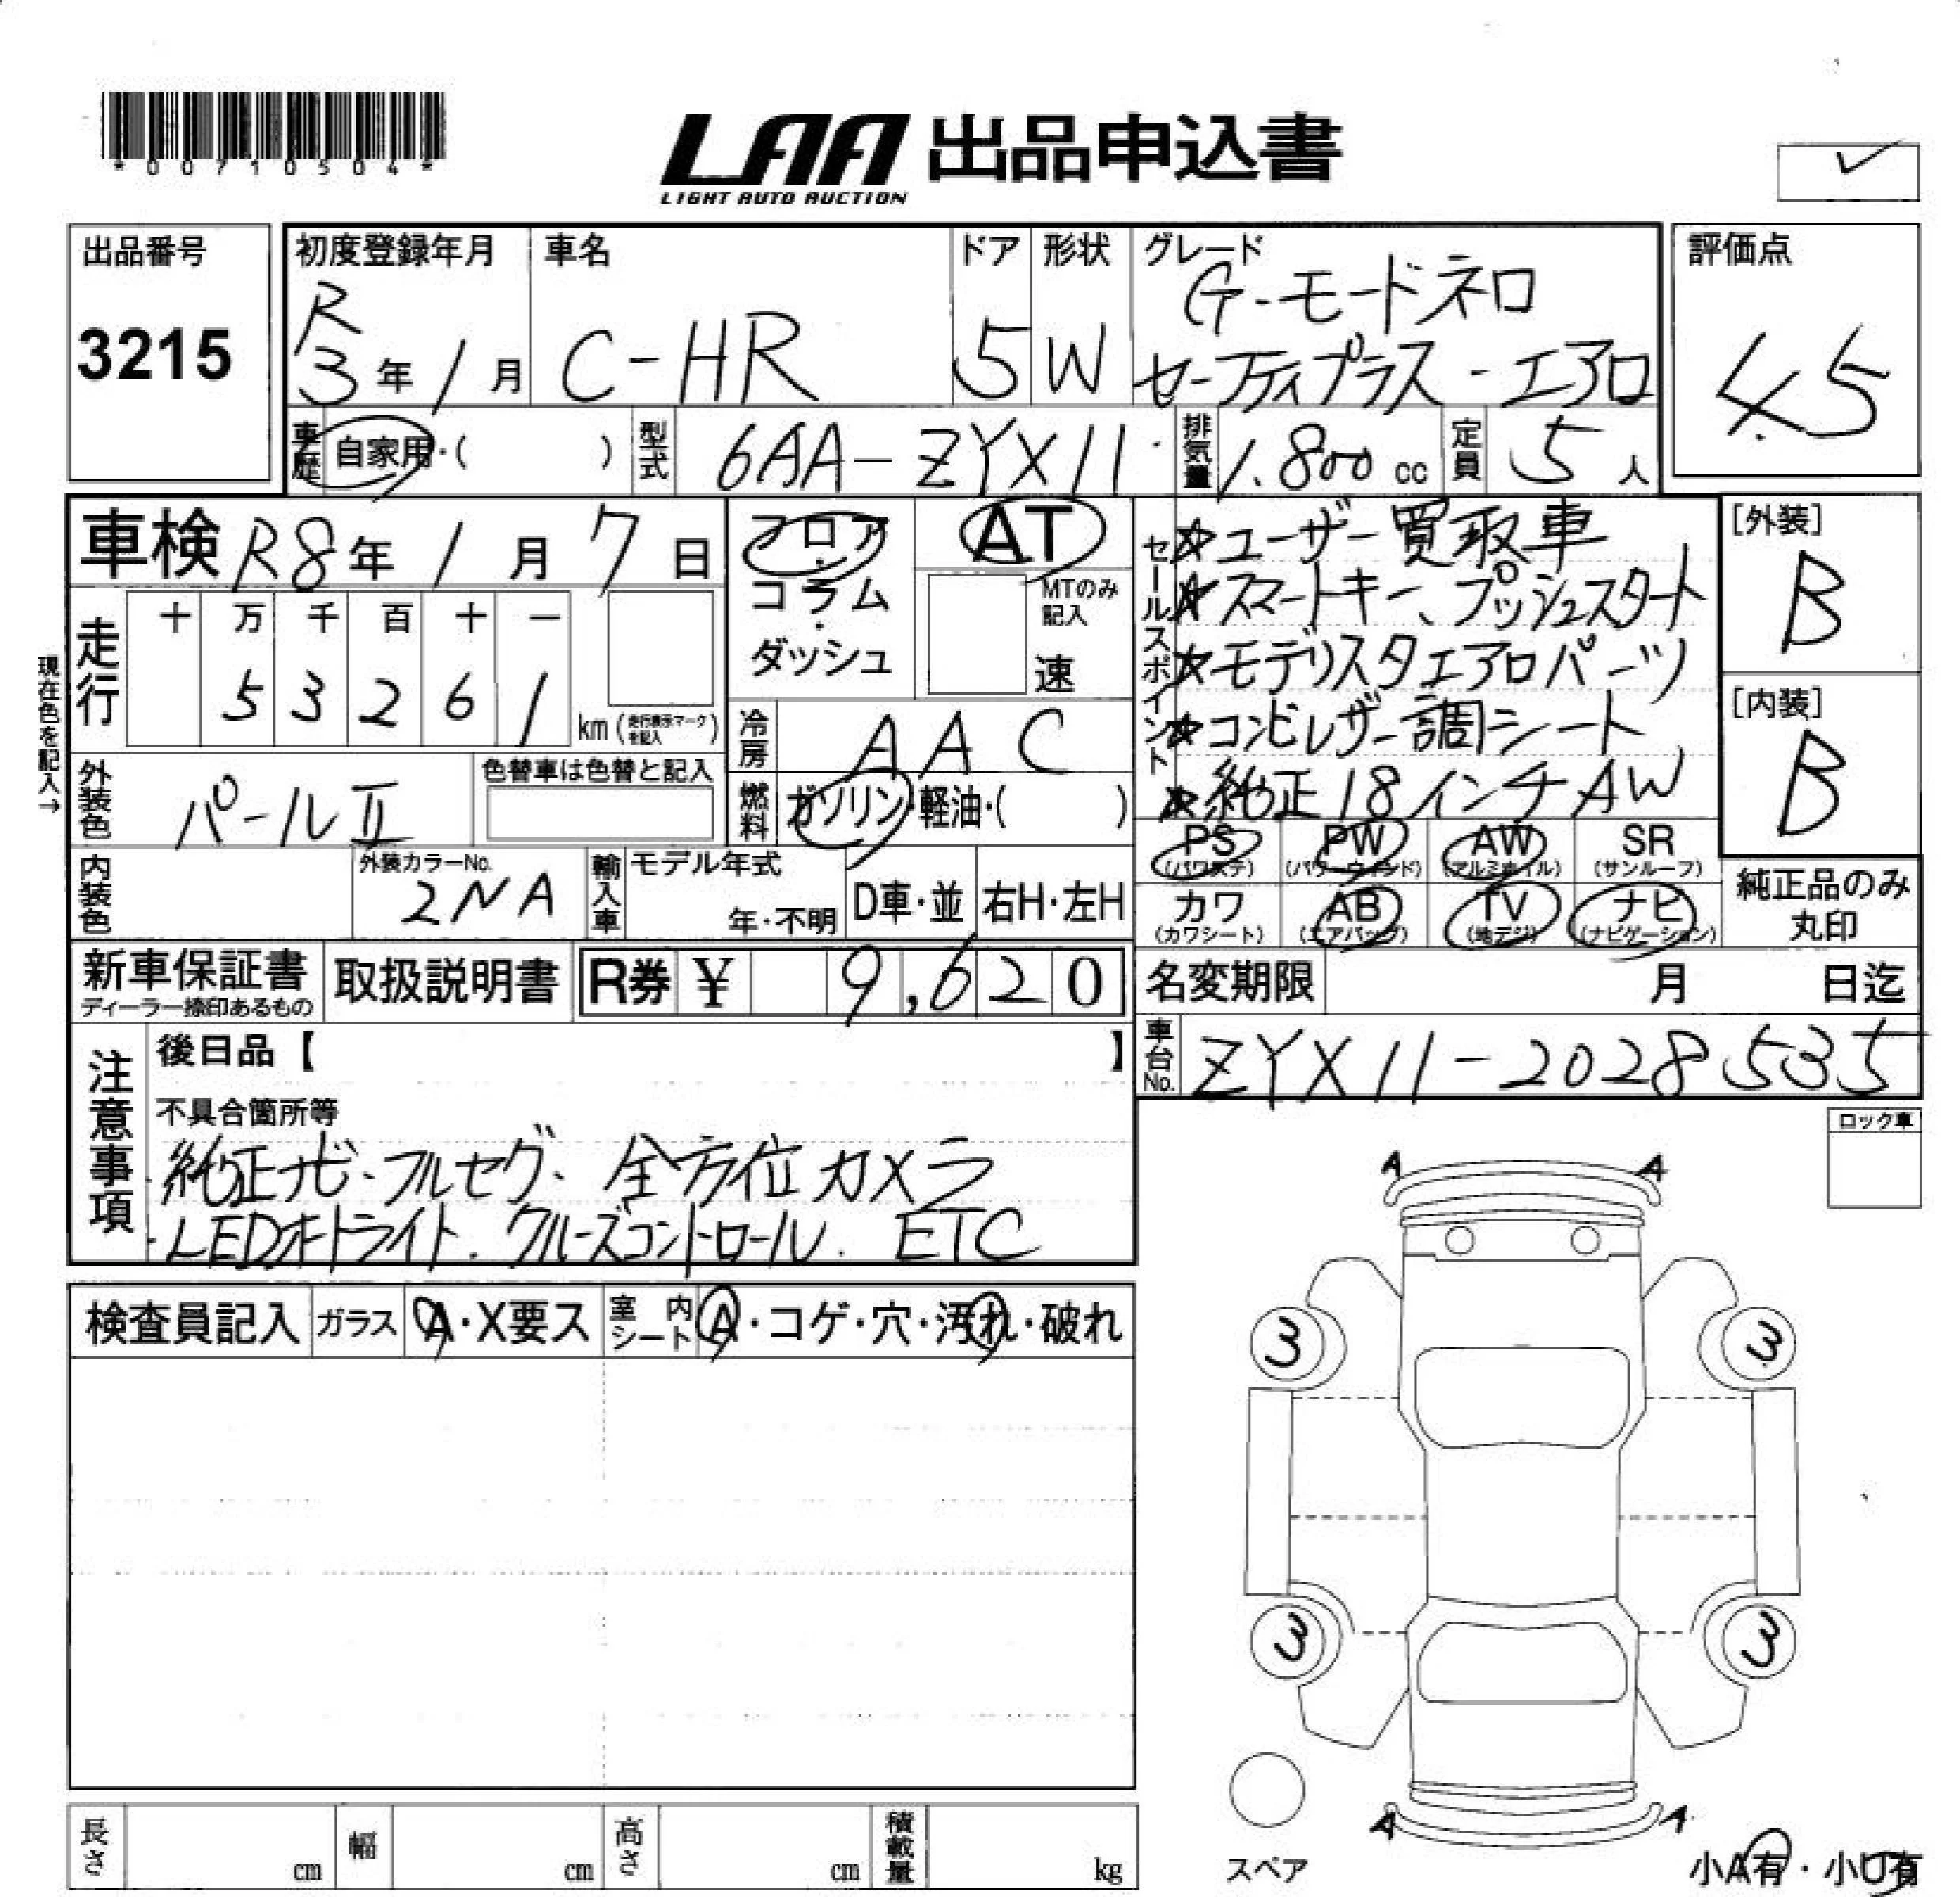 *00710504*
LAA 出品申込書
LIGHT AUTO AUCTION
出品番号
3215
初度登録年月
R
3年1月
車名
C-HR
ドア
5
形状
W
グレード
G-モードネロ
セーフティプラス-エアロ
評価点
4.5
車歴 自家用・( )
型式 6AA-ZYX11
排気量 1.800cc
定員 5人
車検 R8年1月7日
フロア・コラム・ダッシュ
AT
MTのみ記入
速
セールスポイント
☆ユーザー買取車
☆スマートキー、プッシュスタート
☆モデリスタエアロパーツ
☆コンビレザー調シート
☆純正18インチAW
[外装]
B
[内装]
B
現在色を記入→
走行
十 万 千 百 十 一
5 3 2 6 1
km(走行表示マークを記入)
冷房 AAC
燃料 ガソリン・軽油・( )
外装色 パールⅡ
色替車は色替と記入
内装色
外装カラーNo.
2NA
輸入車 モデル年式
年・不明
D車・並
右H・左H
PS (パワステ)
PW (パワーウィンド)
AW (アルミホイル)
SR (サンルーフ)
カワ (カワシート)
AB (エアバッグ)
TV (地デジ)
ナビ (ナビゲーション)
純正品のみ
丸印
新車保証書
ディーラー捺印あるもの
取扱説明書
R券 ¥ 9,620
名変期限 月 日迄
車台No. ZYX11-2028535
注意事項
後日品【 】
不具合箇所等
純正ナビ・フルセグ・全方位カメラ
LEDオートライト.クルーズコントロール.ETC
ロック車
検査員記入 ガラス A・X要ス 室内シート A・コゲ・穴・汚れ・破れ
A A
3 3
3 3
A A
スペア
小A有・小U有
長さ cm 幅 cm 高さ cm 積載量 kg